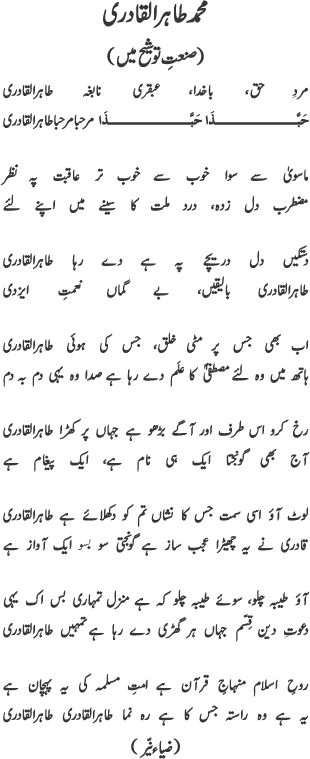 محمد طاہرالقادری
(صنعتِ توشیح میں)
مردِ حق، باخدا، عبقری نابغہ طاہرالقادری
حَبَّذا حَبَّذا مرحبا مرحبا طاہرالقادری
ماسویٰ سے سوا خوب سے خوب تر عاقبت پہ نظر
مضطرب دل زدہ، درد ملت کا سینے میں اپنے لئے
دستکیں دل دریچے پہ ہے دے رہا طاہرالقادری
طاہرالقادری بالیقیں، بے گماں نعمتِ ایزدی
اب بھی جس پر مٹی خلق، جس کی ہوئی طاہرالقادری
ہاتھ میں وہ لئے مصطفیٰؐ کا علَم دے رہا ہے صدا وہ یہی دم بہ دم
رخ کرو اس طرف اور آگے بڑھو ہے جہاں پر کھڑا طاہرالقادری
آج بھی گونجتا ایک ہی نام ہے، ایک پیغام ہے
لوٹ آؤ اسی سمت جس کا نشاں تم کو دکھلائے ہے طاہرالقادری
قادری نے یہ چھیڑا عجب ساز ہے گونجتی سو بسو ایک آواز ہے
آؤ طیبہ چلو، سوئے طیبہ چلو کہ ہے منزل تمہاری بس اک یہی
دعوتِ دین قیّم جہاں ہر گھڑی دے رہا ہے تمہیں طاہرالقادری
روحِ اسلام منہاجِ قرآن ہے امتِ مسلمہ کی یہ پہچان ہے
یہ ہے وہ راستہ جس کا ہے رہ نما طاہرالقادری طاہرالقادری
(ضیاء نیّر)